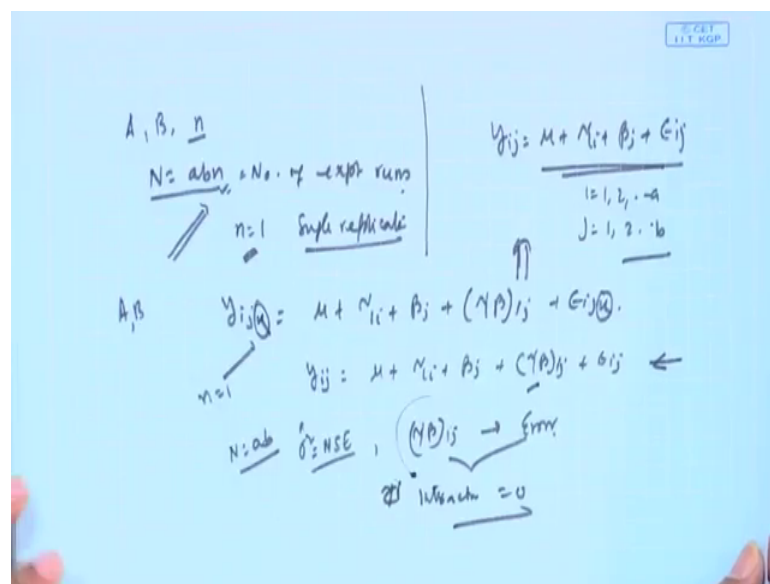 © CET
I.I.T. KGP
A, B, n
N = abn = No. of expt runs
n=1 Single replicate
y_ij = μ + τ_i + β_j + ε_ij
i = 1, 2, .. a
j = 1, 2 .. b
A, B y_ijk = μ + τ_i + β_j + (τβ)_ij + ε_ijk.
n=1
y_ij = μ + τ_i + β_j + (τβ)_ij + ε_ij ←
N=ab σ̂² = MSE, (τβ)_ij → Error
Interaction = 0